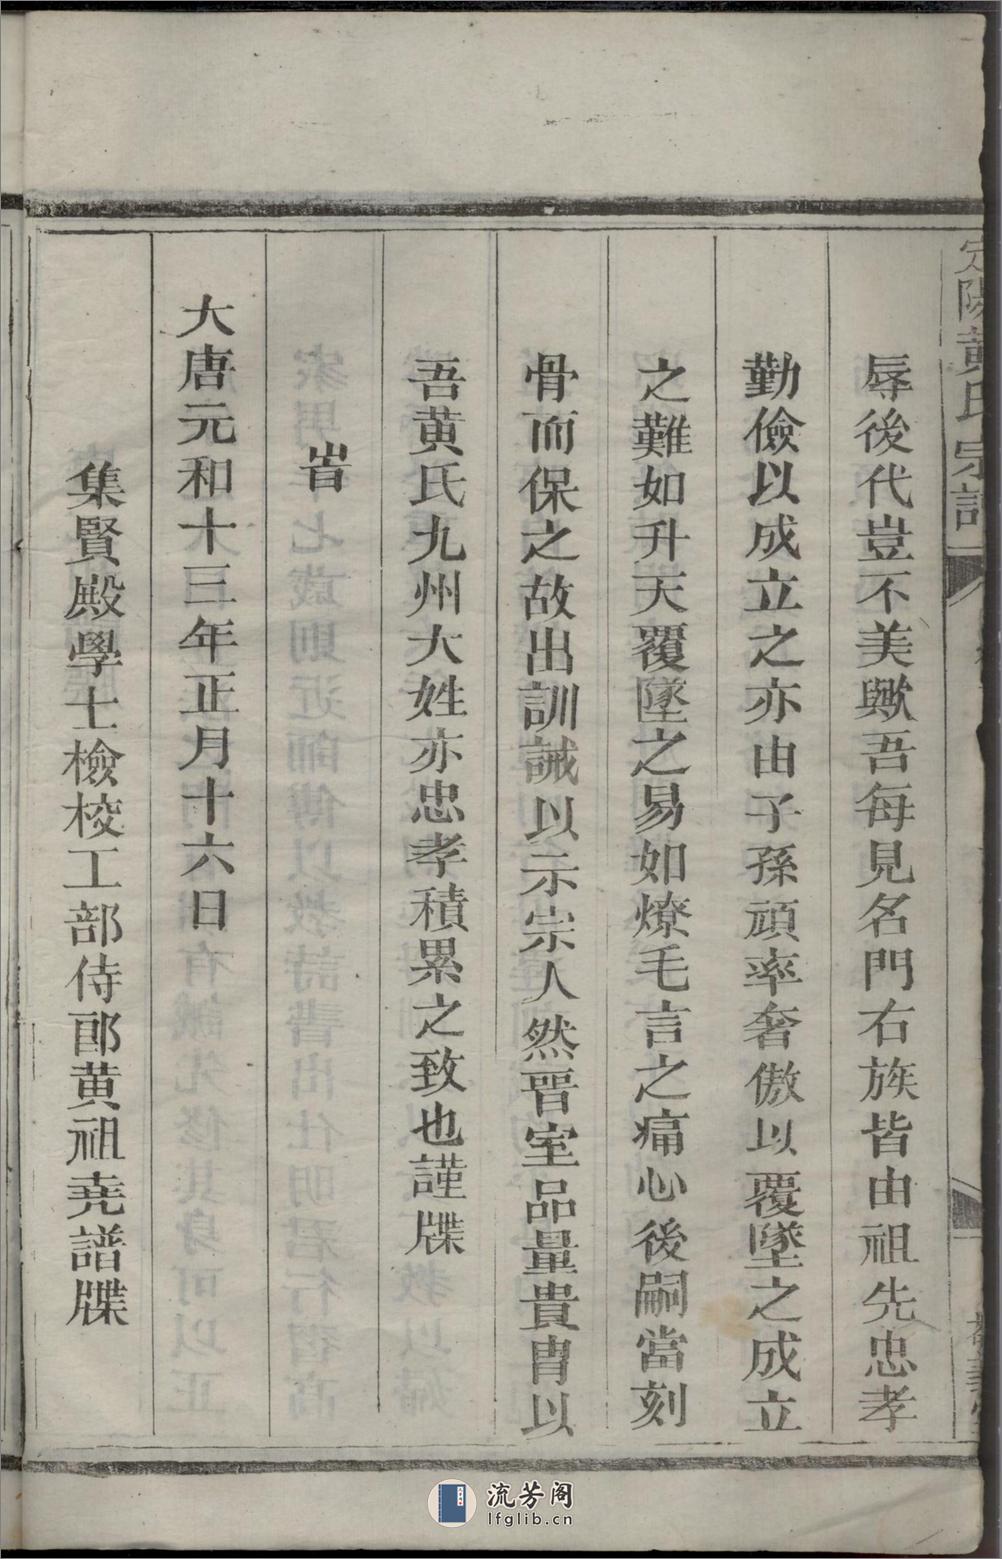 定陽黃氏宗譜
辱後代豈不美歟吾每見名門右族皆由祖先忠孝
勤儉以成立之亦由子孫頑率奢傲以覆墜之成立
之難如升天覆墜之易如燎毛言之痛心後嗣當刻
骨而保之故出訓誡以示宗人然晋室品量貴胄以
吾黄氏九州大姓亦忠孝積累之致也謹牒
旹
大唐元和十三年正月十六日
集賢殿學士檢校工部侍郎黄祖堯譜牒
流芳阁
lfglib.cn